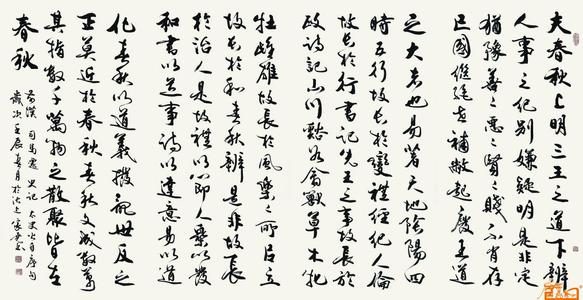 夫春秋上明三王之道下辨
人事之紀別嫌疑明是非定
猶豫善々惡々賢々賤不肖存
亡國繼絕世補敝起廢王道
之大者也易著天地陰陽四
時五行故長於變禮經紀人倫
故長於行書記先王之事故長於
政詩記山川谿谷禽獸草木牝
牡雌雄故長於風樂々所以立
故長於和春秋辨是非故長
於治人是故禮以節人樂以發
和書以道事詩以達意易以道
化春秋以道義撥亂世反之
正莫近於春秋春秋文成數萬
其指數千萬物之散聚皆在
春秋
西漢司馬遷史記太史公自序句
歲次壬辰春月於